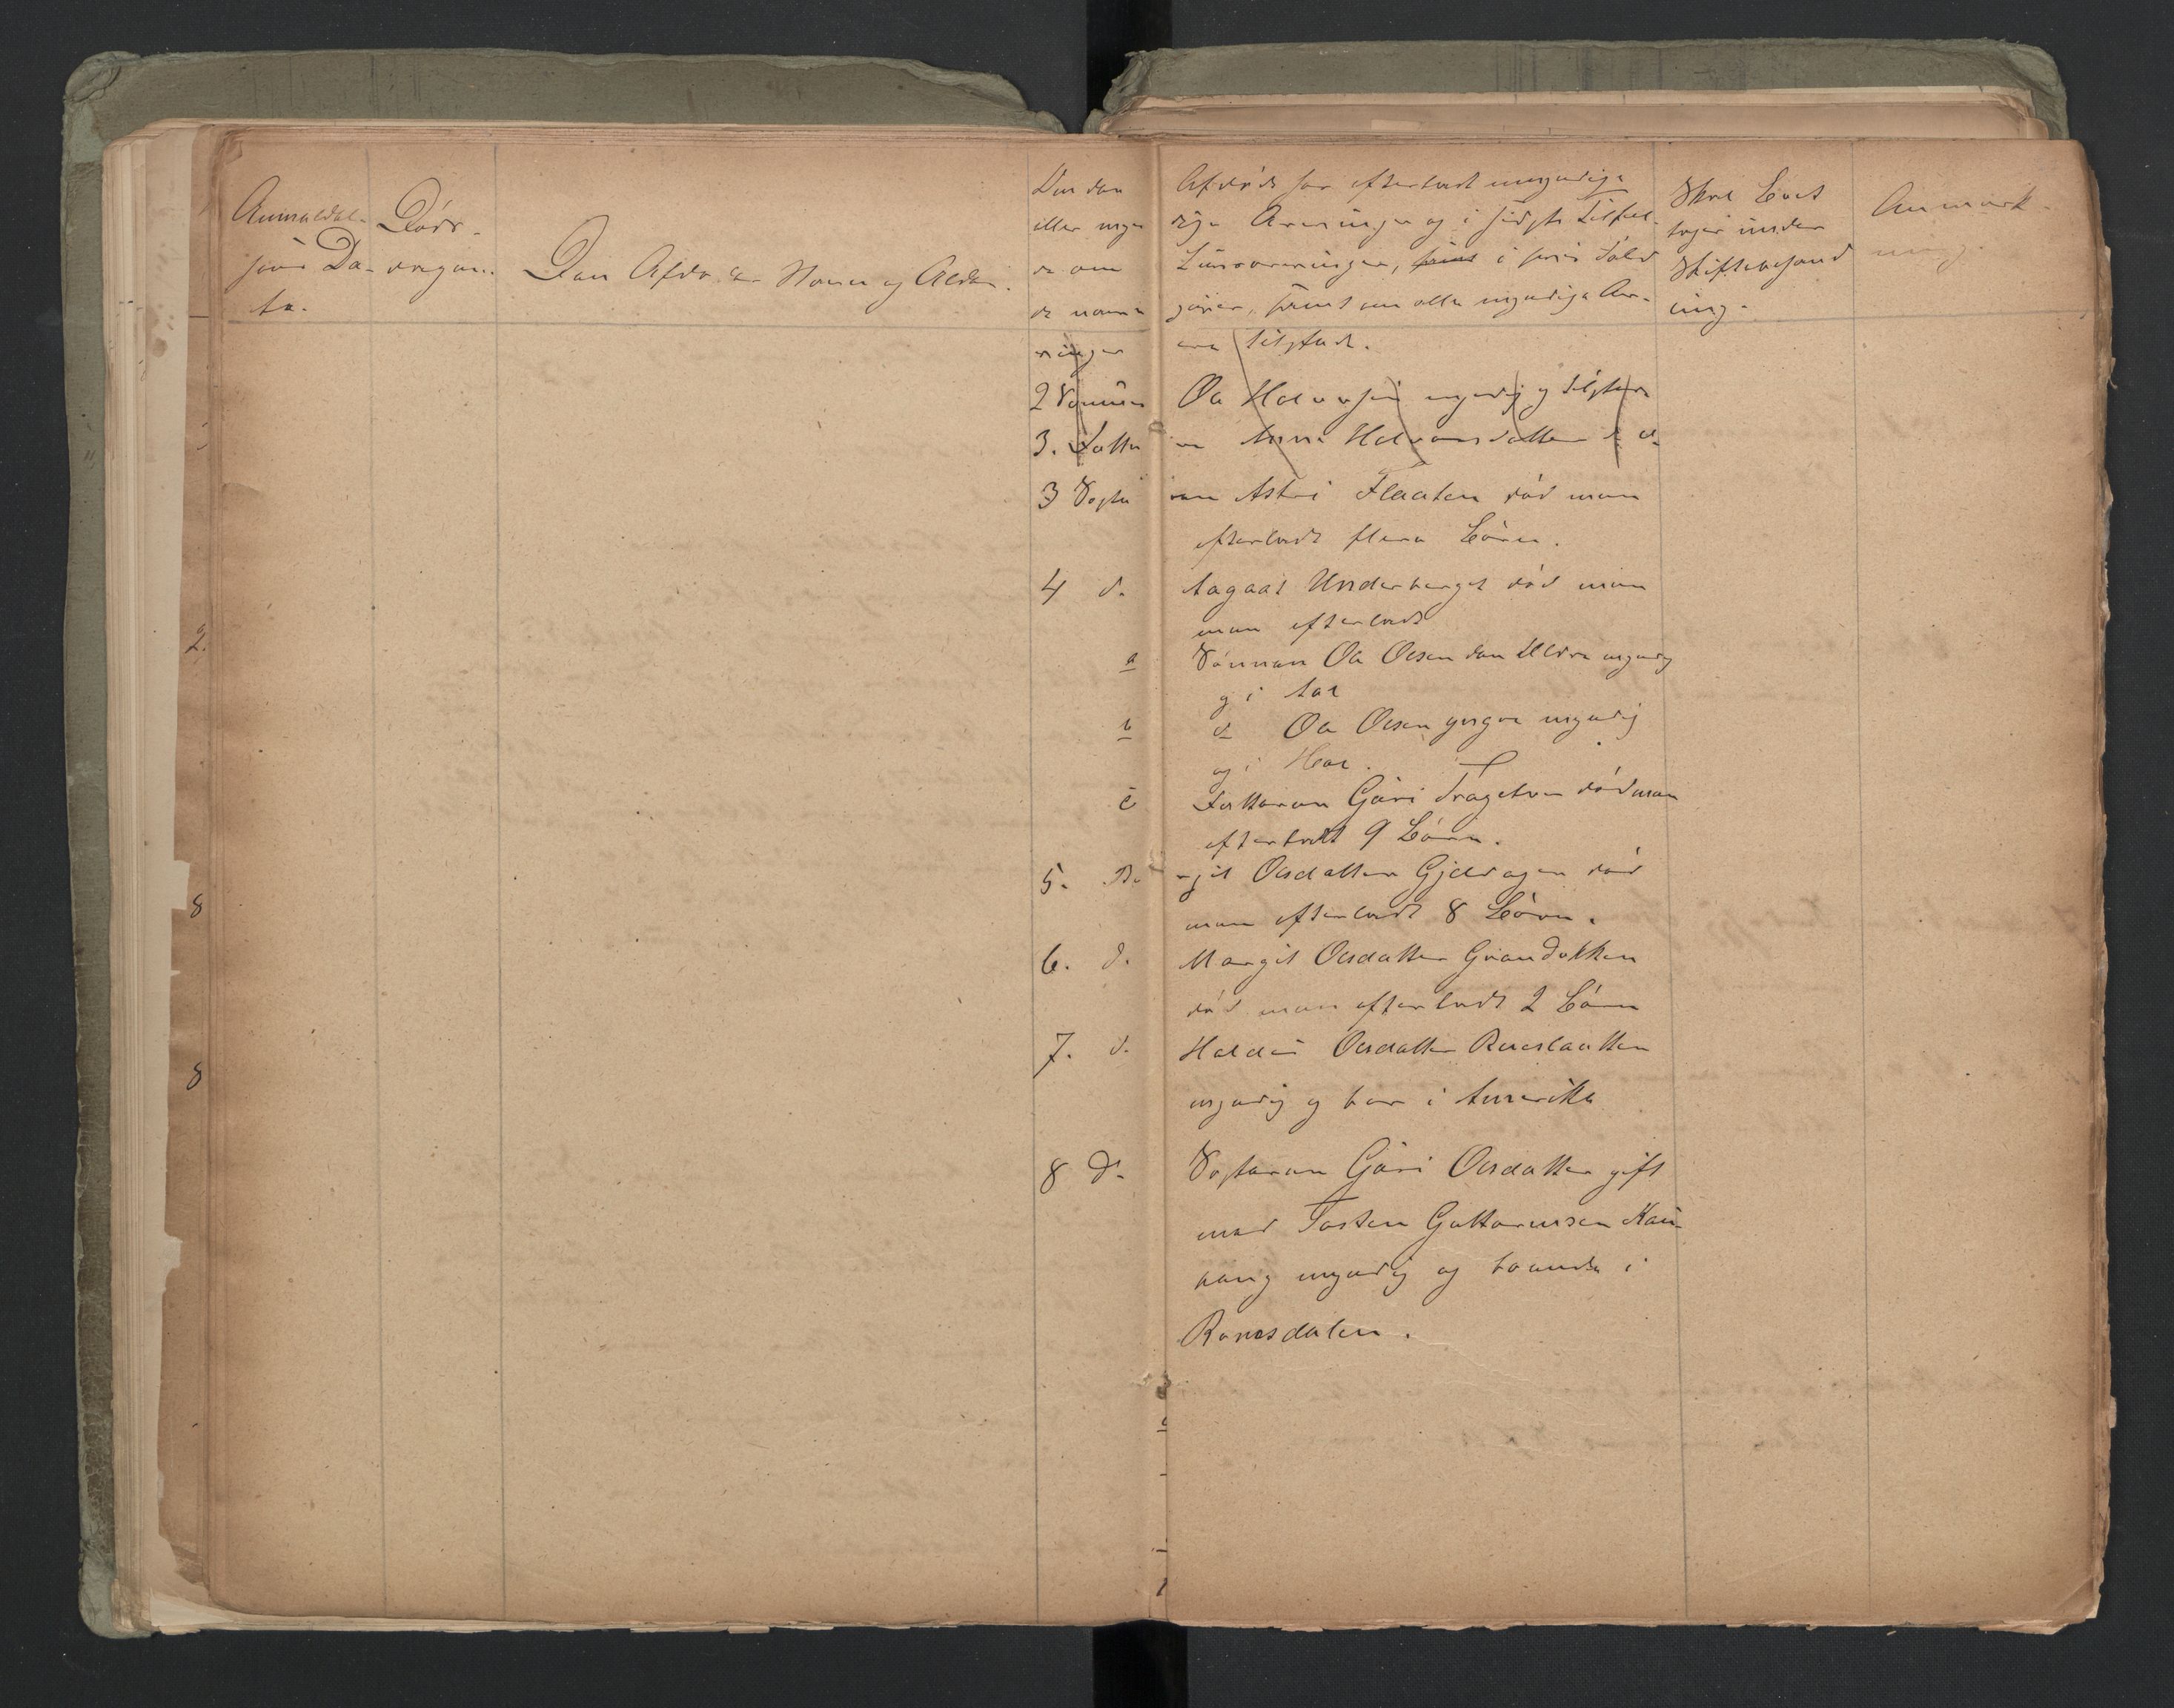 Anmeldel-
sens Da-
to.
Døds-
dagen.
Den Afdødes Navn og Alder.
Om den
eller myn
de om
de næv
ninger
Afdøde har efterladt umyndige
dige Arvinger og i sidste Tilfæl-
Livsarvinger, samt i hvis Fald
gjører, samt om alle myndige Ar-
ere tilstede.
Skal Boet
tages under
Skiftebehand
ling.
Anmærk-
ning.
2 Sønnen Ole Halvorsen myndig og tilstede
3. Datteren Anna Halvorsdatter d o
3 Søsteren Astri Flaaten død men
efterladt flere Børn.
4 d. Aagaat Underberget død men
men efterladt
a Sønnen Ole Olsen den Eldre myndig
og i Aal
b d Ole Olsen yngre myndig
og i Hol.
c Datteren Guri Trageton død men
efterladt 9 Børn.
5. Birgit Olsdatter Gjeldagen død
men efterladt 8 Børn.
6. d. Margit Olsdatter Grandokken
død men efterladt 2 Børn
7. d. Haldis Olsdatter Rueslaatten
myndig og bor i Amerika
8 d. Søsteren Guri Olsdatter gift
med Tosten Guttormsen
myndig og boende i
Romsdalen.
2.
8
8